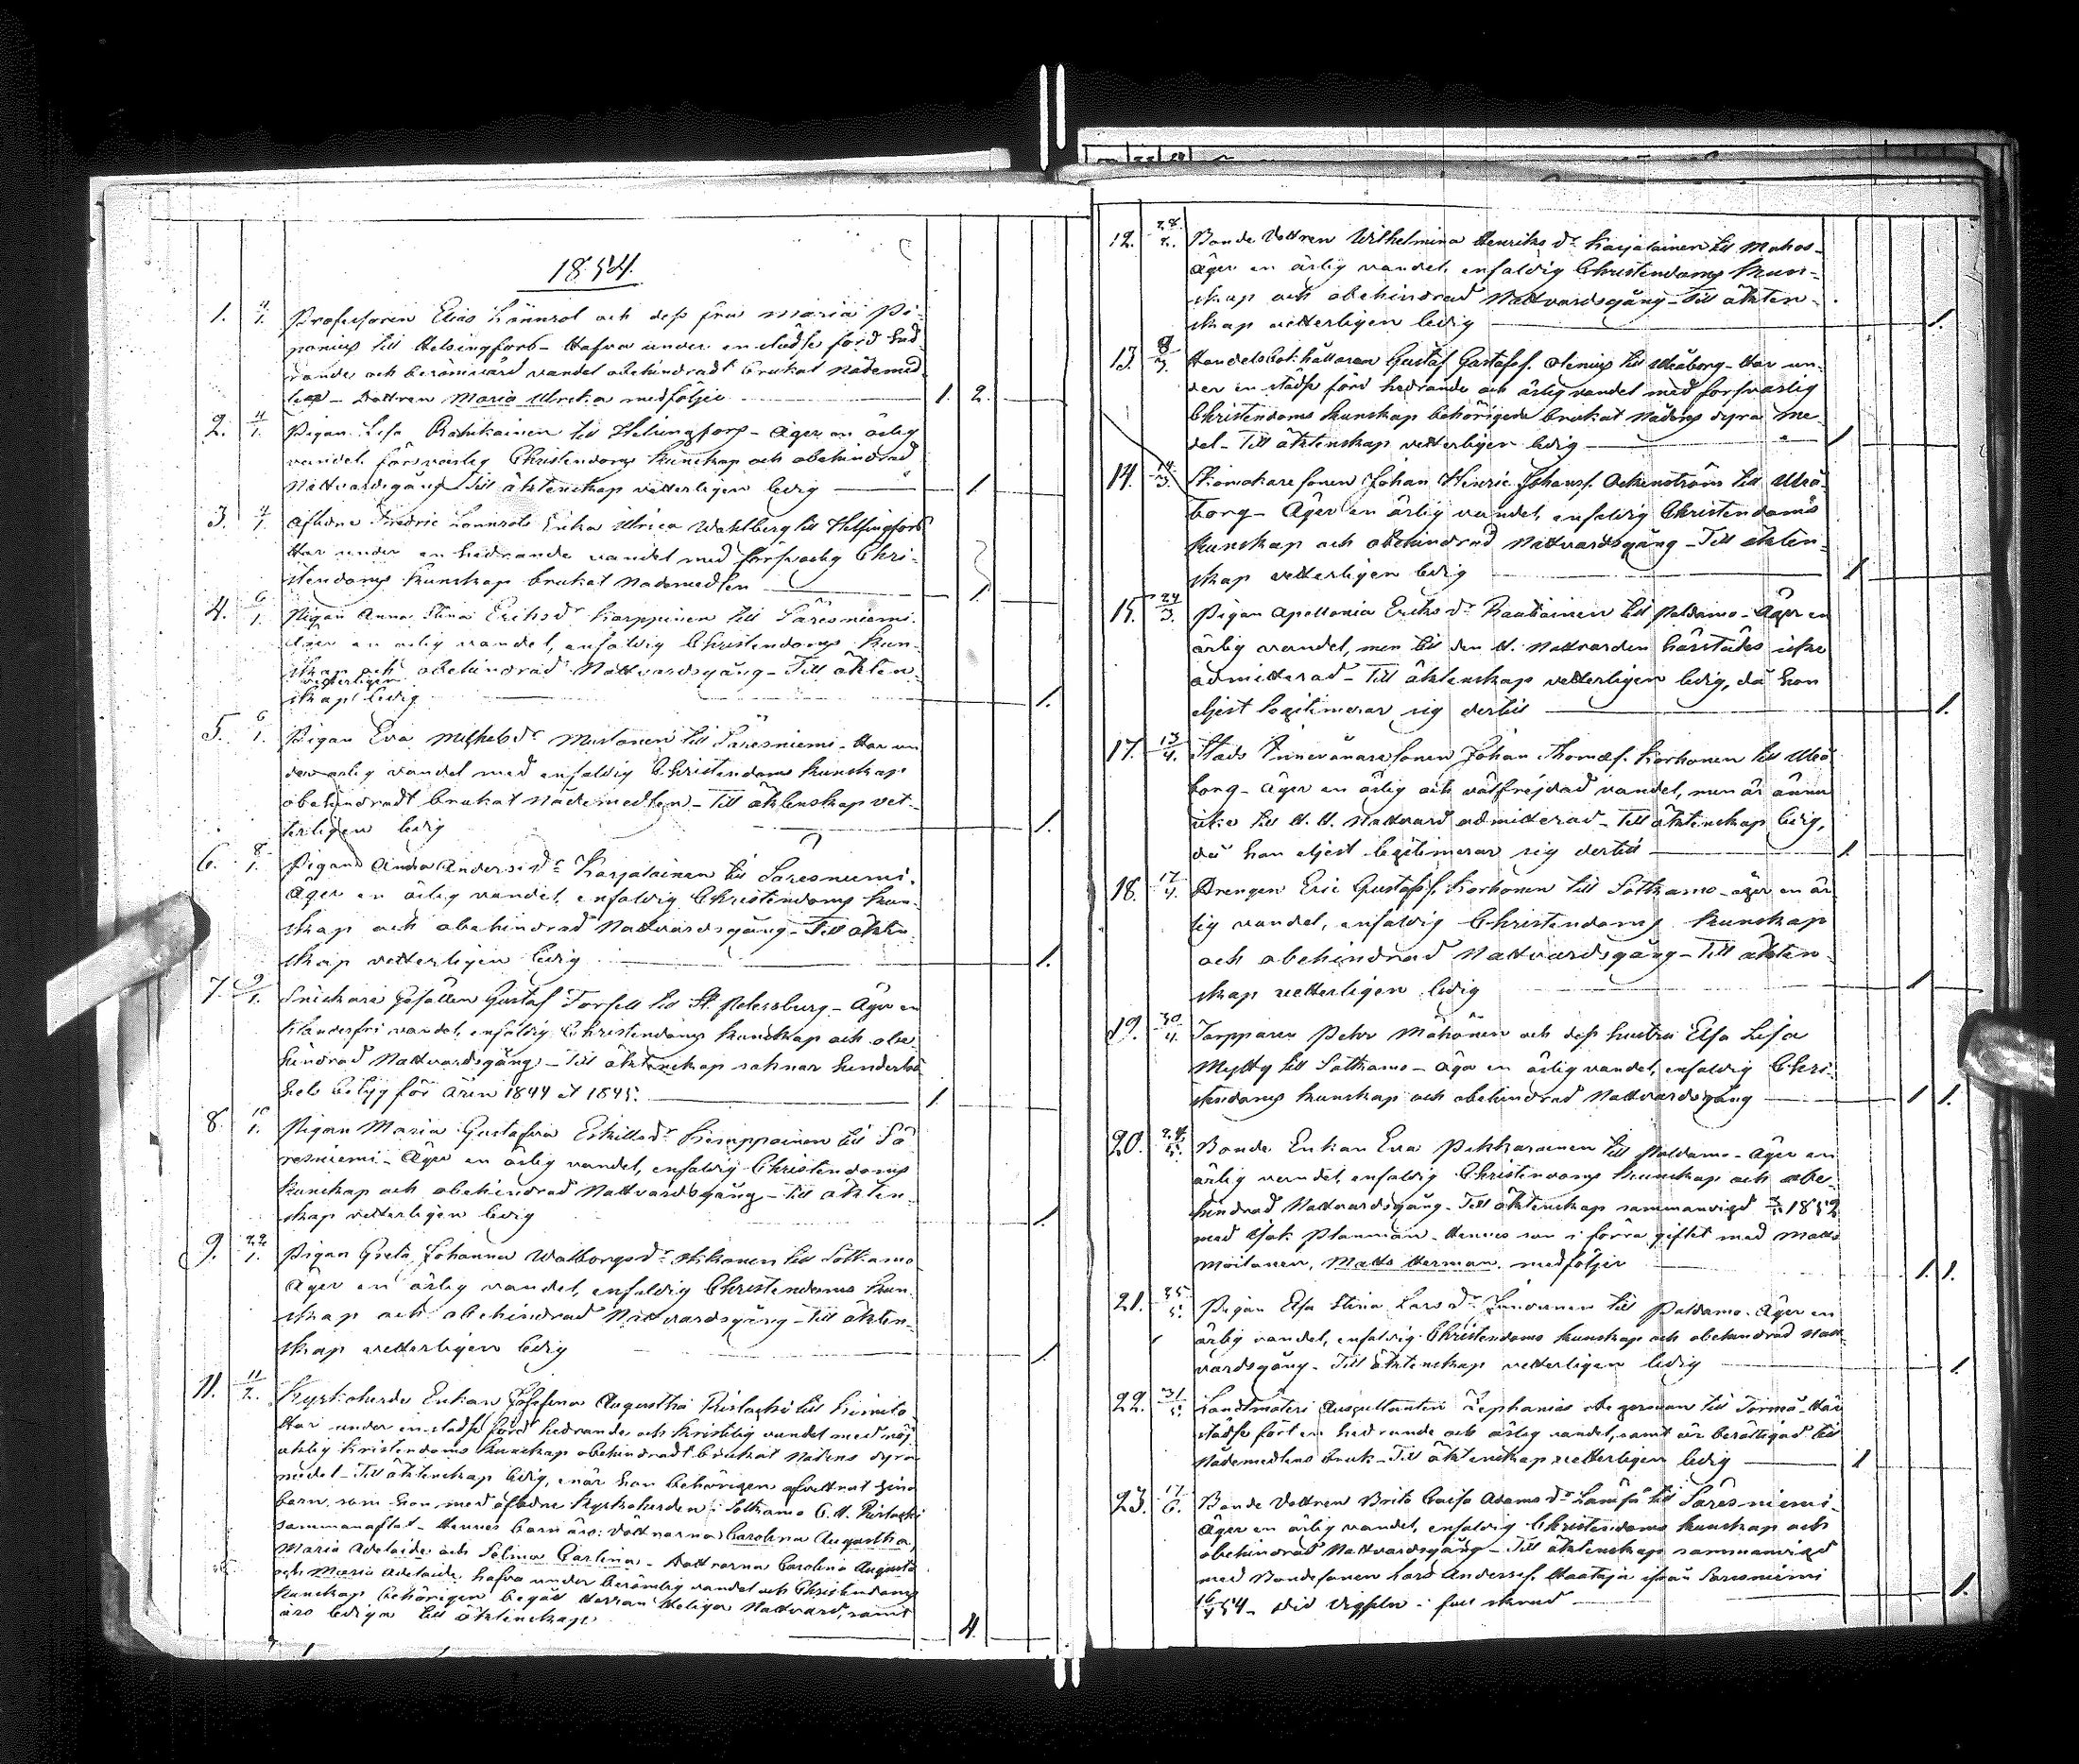 1854.
1. 4/1. Professoren Elias Lönnrot och dess fru Maria Pi-
ponius till Helsingfors - Hafva under en städse förd hed-
rande och berömvärd vandel obehindradt brukat nådemed-
len - Dottren Maria Ulrika medföljer 1. 2.
2. 4/1. Pigan Lisa till Helsingfors - Äger en ärlig
vandel, försvarlig Christendoms kunskap och obehindrad
Nattvardsgång - Till äktenskap vetterligen ledig 1.
3. 4/1. Afledne Fredric Lönnrots Enka Ulrica Wahlberg till Helsingfors
Har under en hedrande vandel med försvarlig Chri-
stendoms kunskap brukat Nådemedlen 1.
4. 6/1. Pigan Anna Stina Ericsdr Karppinen till Säresniemi.
Äger en ärlig vandel, enfaldig Christendoms kun-
skap och obehindrad Nattvardsgång - Till äkten-
vetterligen
skap ledig 1.
5. 6/1. Pigan Eva Michelsdr Mustonen till Säresniemi - Har un-
der ärlig vandel med enfaldig Christendoms kunskap
obehindradt brukat nådemedlen - Till äktenskap vet-
terligen ledig 1.
6. 8/1. Pigan Anna Andersdr Karjalainen till Säresniemi.
Äger en ärlig vandel, enfaldig Christendoms kun-
skap och obehindrad Nattvardsgång - Till äkten-
skap vetterligen ledig 1.
7. 9/1. Snickare Gesällen Gustaf Forsell till St. Petersburg - Äger en
klanderfri vandel, enfaldig Christendoms kunskap och obe-
hindrad Nattvardsgång - Till äktenskap saknar hinderlös-
hets betyg för åren 1844 et 1845. 1
8. 10/1. Pigan Maria Gustafva Eskilsdr Kemppainen till Sä-
resniemi - Äger en ärlig vandel, enfaldig Christendoms
kunskap och obehindrad Nattvardsgång - Till äkten-
skap vetterligen ledig 1.
9. 22/1. Pigan Greta Johanna Walborgsdr till Sotkamo
Äger en ärlig vandel, enfaldig Christendoms kun-
skap och obehindrad Nattvardsgång - Till äkten-
skap vetterligen ledig 1.
11. 11/2. Kyrkoherde Enkan Josefina Augustha till Kimito
Har under en städse förd hedrande och kristlig vandel med nöj-
aktig kristendoms kunskap obehindradt brukat Nådens dyra
medel - Till äktenskap ledig, enär hon behörigen afvittrat sina
barn, som hon med afledne Kyrkoherden i Sotkamo C. H.
sammanaflat - Hennes barn äro: Döttrarna Carolina Augustha,
Maria Adelaide och Selma Carlina - Döttrarna Carolina Augusta
och Maria Adelaide hafva under berömlig vandel och Christendoms
kunskap behörigen begått Herrans Heliga Nattvard, samt
äro lediga till äktenskap. 4.
12. 28/2. Bonde Dottren Wilhelmina Henriksdr Karjalainen till Muhos-
Äger en ärlig vandel, enfaldig Christendoms kun-
skap och obehindrad Nattvardsgång - Till äkten-
skap vetterligen ledig 1.
13. 8/3. Handelsbokhållaren Gustaf Gustafss. till Uleåborg - Har un-
der en städse förd hedrande och ärlig vandel med försvarlig
Christendoms kunskap behörigen brukat Nådens dyra me-
del - Till äktenskap vetterligen ledig 1
14. 14/3. Skomakare sonen Johan Henric Johanss. Ockenström till Uleå-
borg - Äger en ärlig vandel, enfaldig Christendoms
kunskap och obehindrad Nattvardsgång - Till äkten-
skap vetterligen ledig 1
15. 24/3. Pigan Apollonia Ericsdr Rautiainen till Paldamo - Äger en
ärlig vandel, men till den H. Nattvarden härstädes icke
admitterad - Till äktenskap vetterligen ledig, då hon
eljest legitimerar sig dertill 1.
17. 13/4. Stads sonen Johan Thomæss. Korhonen till Uleå-
borg - Äger en ärlig och välfrejdad vandel, men är ännu
icke till H. H. Nattvard admitterad - Till äktenskap ledig,
då han eljest legitimerar sig dertill 1.
18. 17/4. Drengen Eric Gustafss. Korhonen till Sotkamo - äger en är-
lig vandel, enfaldig Christendoms kunskap
och obehindrad Nattvardsgång - Till äkten-
skap vetterligen ledig 1
19. 30/4. Torpparen Pehr Mähönen och dess hustru Elsa Lisa
Mytty till Sotkamo - Äga en ärlig vandel, enfaldig Chri-
stendoms kunskap och obehindrad Nattvardsgång 1 1.
20. 24/5. Bonde Enkan Eva Pekkarainen till Paldamo - Äger en
ärlig vandel, enfaldig Christendoms kunskap och obe-
hindrad Nattvardsgång - Till äktenskap sammanvigd 1852
med Isak Planman - Hennes son i förra giftet med Matts
Moilanen, Matts Herman, medföljer 1. 1.
21. 25/5. Pigan Elsa Stina Larsdr till Paldamo - Äger en
ärlig vandel, enfaldig Christendoms kunskap och obehindrad Natt-
vardsgång - Till äktenskap vetterligen ledig 1.
22. 31/5. Landtmäteri Auscultanten Zephanias till - Har
städse fört en hedrande och ärlig vandel, samt är berättigad till
Nådemedlens bruk - Till äktenskap vetterligen ledig 1
23. 17/6. Bonde Dottren Brita Caisa Adamsdr till Säresniemi -
Äger en ärlig vandel, enfaldig Christendoms kunskap och
obehindrad Nattvardsgång - Till äktenskap sammanvigd
med Bondesonen Lars Anderss. Haataja ifrån Säresniemi
54 - vid vigseln 1.